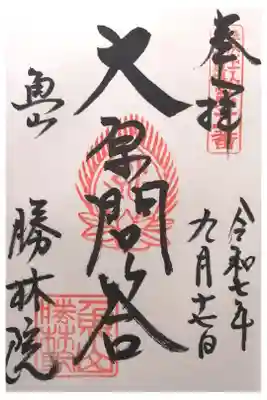 奉拝
令和七年
九月十七日
大原問答
魚山
勝林院
魚山
勝林院